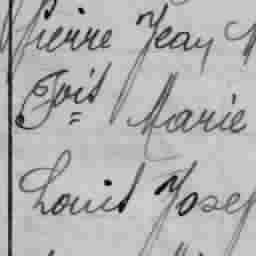 Pierre Jean
Fois Marie
Louis Josep